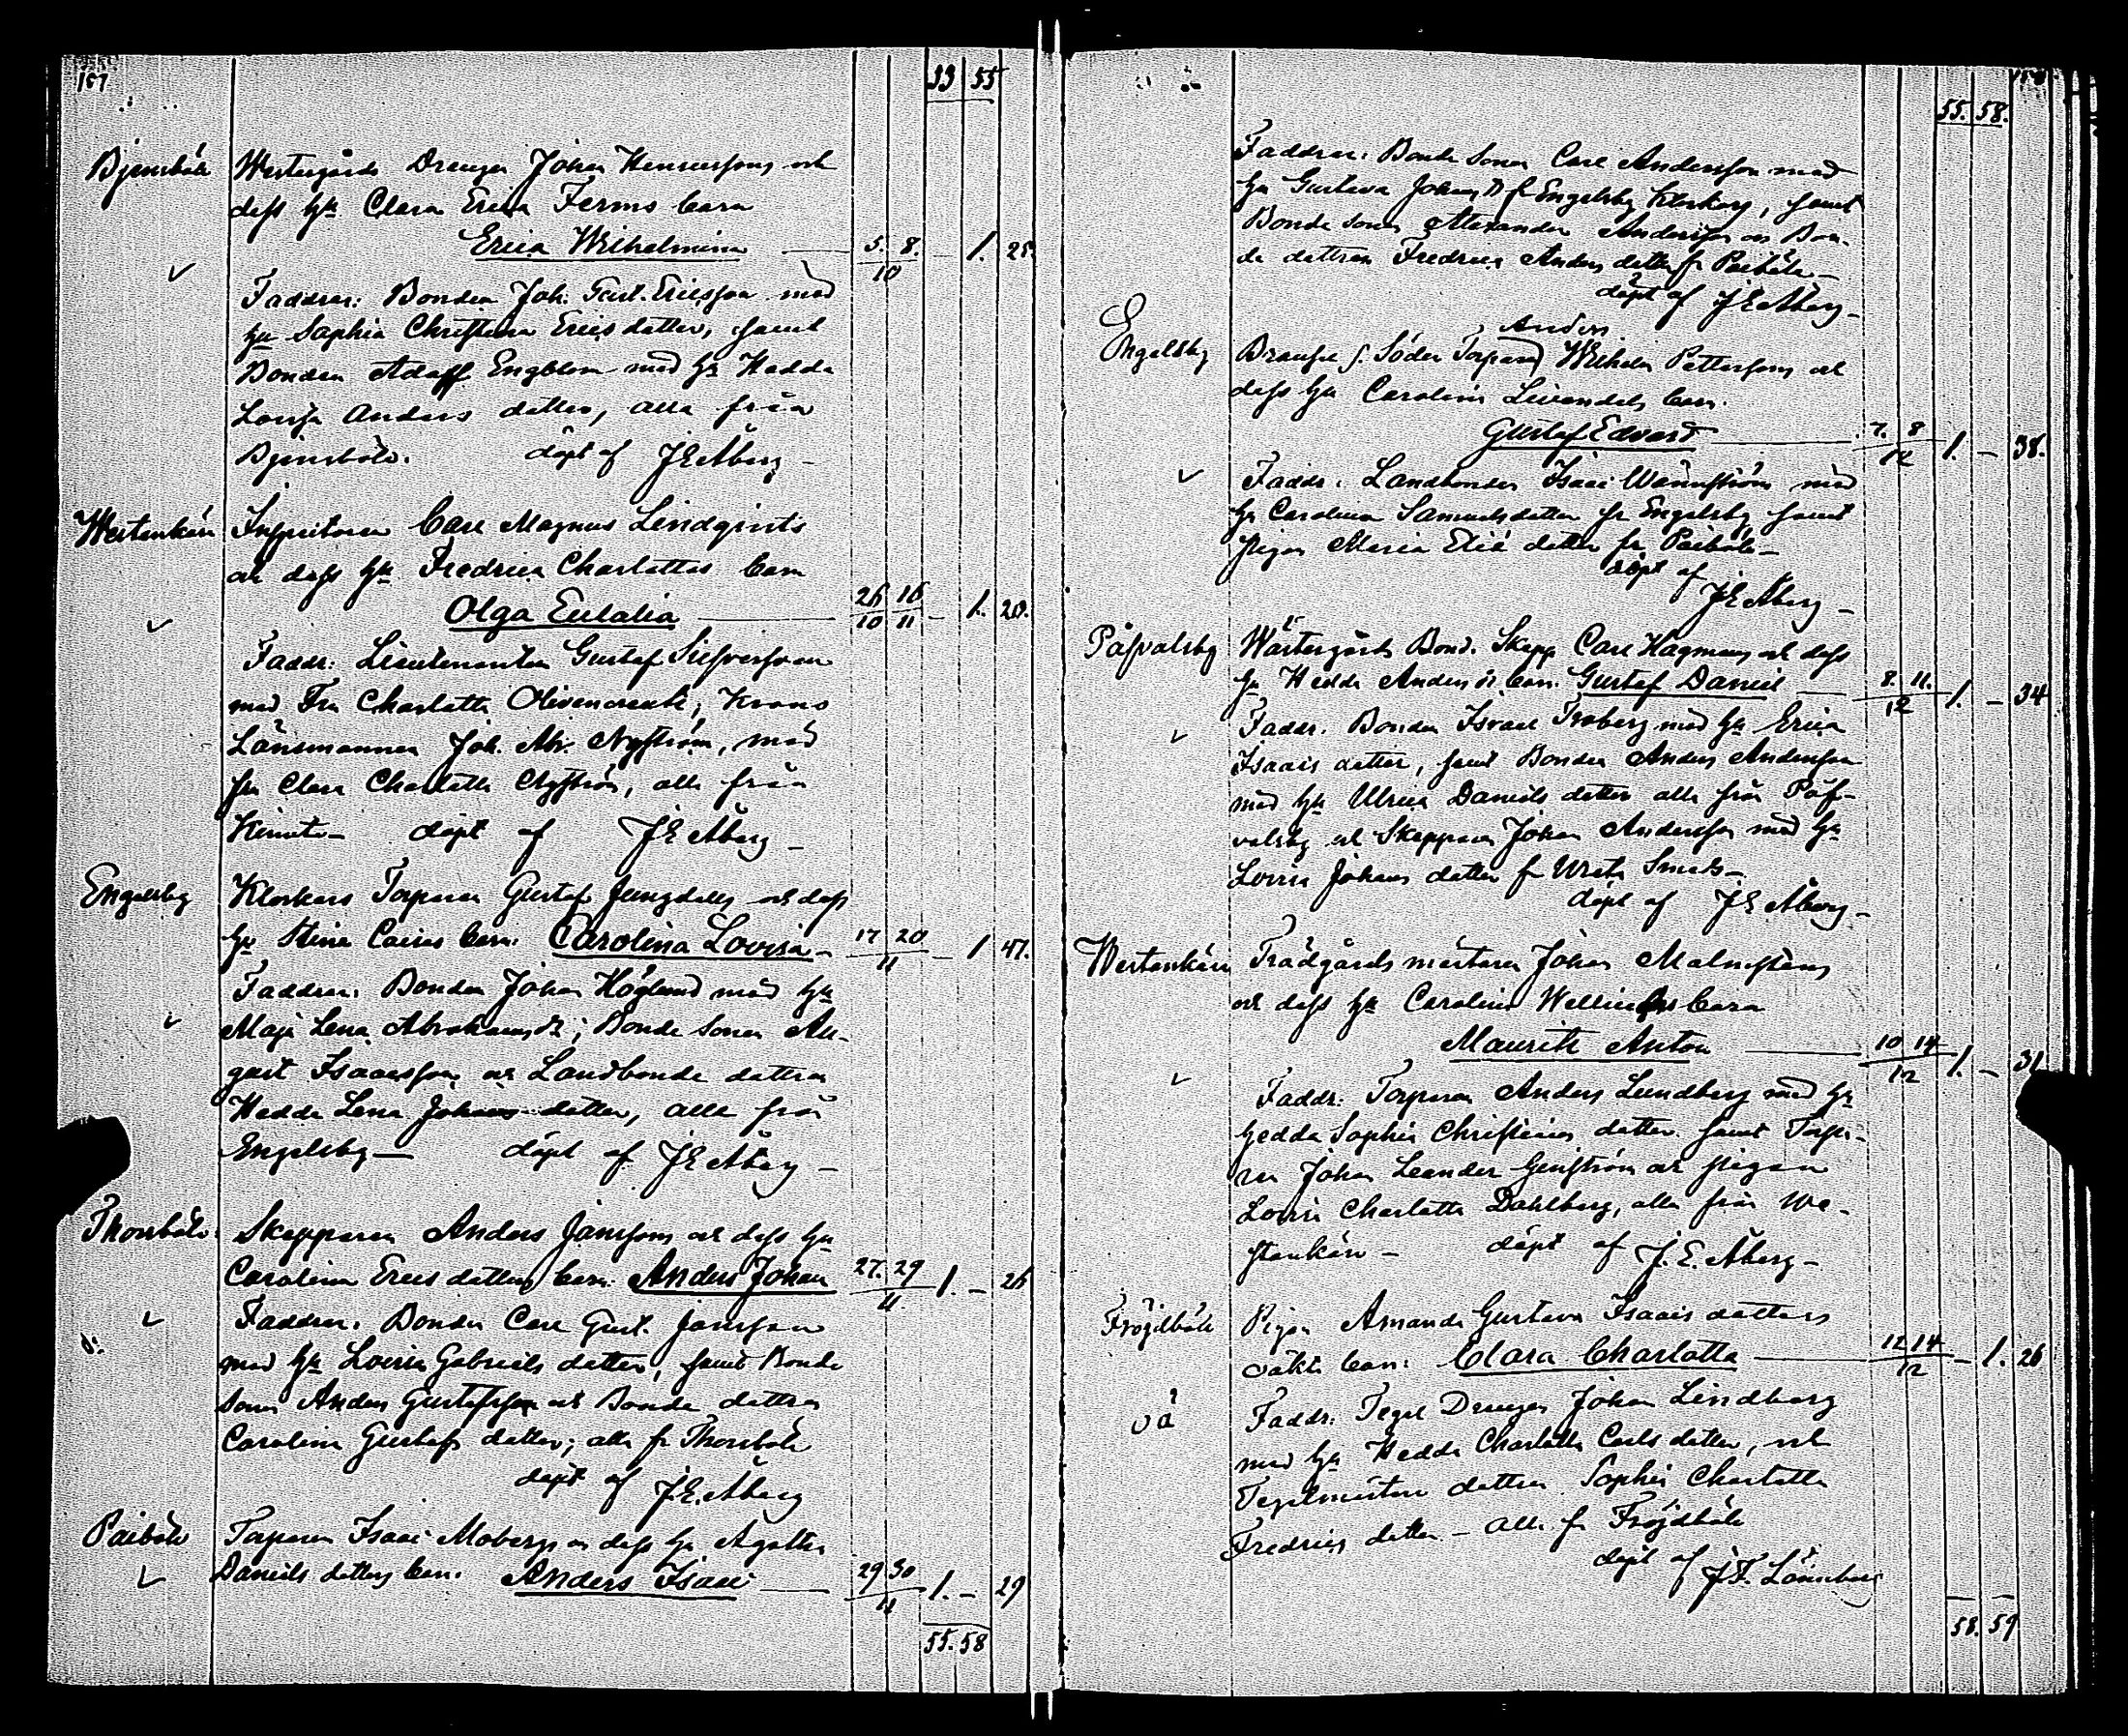 157
33 55
Bjensböle Westergårds Drengen Johan Henricssons och
dess hu Clara Erica Ferms barn
Erica Wilhelmina 5. 8. 10 – 1. 25.
Faddrar: Bonden Joh. Gust. Ericsson med
hu Sophia Christina Ericsdotter, samt
Bonden Adolf Engblom med hu Hedda
Lovisa Anders dotter, alla från
Bjensböle. döpt af J E Åberg –
Westankärr Inspectoren Carl Magnus Lindqvists
och dess hu Fredrica Charlottas barn
Olga Eulalia 26 16 10 11 – 1. 20.
Faddr: Lieutenanten Gustaf
med Fru Charlotta Olivencreutz, Krono
Länsmannen Joh. Abr. Nyström, med
fru Clara Charlotta Nyström, alla från
Kimito – döpt af J E Åberg –
Engelsby Klockars Torparen Gustaf Ljungdells och dess
hu Stina Caisas barn: Carolina Lovisa – 17 20 11 – 1 41.
Faddrar: Bonden Johan Höglund med hu
Maja Lena Abrahamsdr; Bonde sonen Au-
gust Isaacsson och Landbonde dottren
Hedda Lena Johans dotter, alla från
Engelsby – döpt af J E Åberg –
Thorsböle: Skepparen Anders Janssons och dess hu
Carolina Erics dotters barn: Anders Johan 27. 29 11. 1. – 26
Faddrar: Bonden Carl Gust. Jansson
med hu Lovisa Gabriels dotter, samt Bonde
sonen Anders Gustafsson och Bonde dottren
Carolina Gustafs dotter; alla fr Thorsböle
döpt af J. E. Åberg
Paiböle Torparen Isaac Mobergs och dess hu Agatha
Daniels dotters barn. Anders Isaac 29 30 11 1. – 29
55. 58
55. 58.
Faddrar: Bonde sonen Carl Andersson med
hu Gustava Johans Dr fr Engelsby Klockars, samt
Bonde sonen Alexander Andersson och Bon-
de dottren Fredrica Anders dotter fr Paiböle –
döpt af J E Åberg –
Anders
Engelsby Söder Torparen Wilhelm Petterssons och
dess hu Carolina barn.
Gustaf Edvard 7. 8 12 1. – 38.
Faddr: Landbonden Isaac Wännström med
hu Carolina Samuelsdotter fr Engelsby samt
pigan Maria dotter fr Paiböle –
döpt af
J E Åberg –
Påfvalsby Wästergårds Bond. Skepp Carl Hagmans och dess
hu Hedda Anders dr barn. Gustaf Daniel 8. 11. 12 1. – 34
Faddr. Bonden Israel Froberg med hu Erica
Isaacs dotter, samt Bonden Anders Andersson
med hu Ulrica Daniels dotter alla från Påf-
valsby och Skepparen Johan Andersson med hu
Lovisa Johans dotter fr Wreta Smeds –
döpt af J E Åberg –
Westankärr Trädgårds mästaren Johan Malmstens
och dess hu Carolina Wellins barn
Mauritz Anton 10 14 12 1. – 31
Faddr: Torparen Anders Lundberg med hu
Hedda Sophia Christians dotter samt Torpa-
ren Johan Leander och pigan
Lovisa Charlotta Dahlberg, alla från We-
stankärr – döpt af J. E. Åberg –
Fröjdböle Pigan Amanda Gustava Isaacs dotters
oäkta barn: Clara Charlotta 12 14 12 – 1. 26
oä Faddr: Tegel Drengen Johan Lindberg
med hu Hedda Charlotta Carls dotter, och
Tegelmästare dottren Sophia Charlotta
Fredrics dotter – alla fr Fröjdböle
döpt af J. F.
58. 59